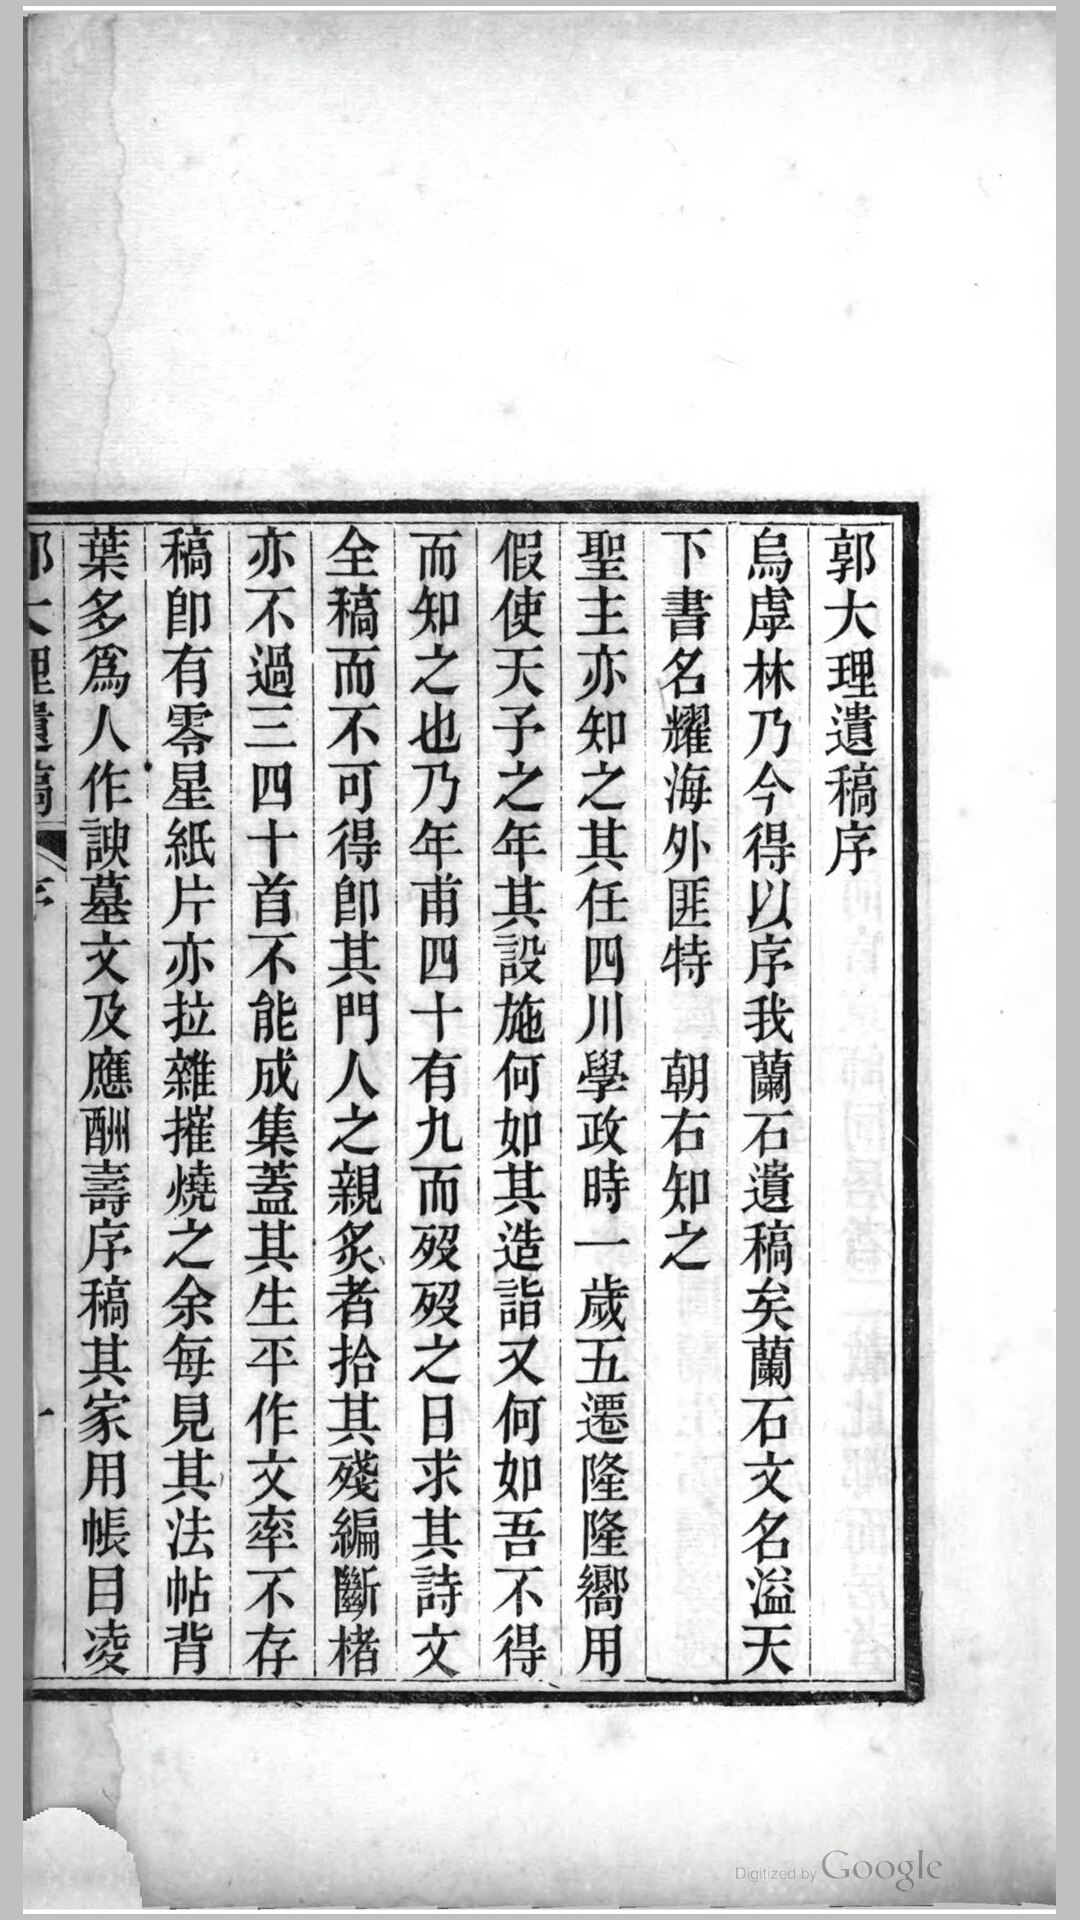 郭大理遺稿序
烏虖林乃今得以序我蘭石遺稿矣蘭石文名溢天
下書名耀海外匪特　朝右知之
聖主亦知之其任四川學政時一歲五遷隆隆嚮用
假使天子之年其設施何如其造詣又何如吾不得
而知之也乃年甫四十有九而歿歿之日求其詩文
全稿而不可得卽其門人之親炙者拾其殘編斷楮
亦不過三四十首不能成集蓋其生平作文率不存
稿卽有零星紙片亦拉雜摧燒之余每見其法帖背
葉多爲人作諛墓文及應酬壽序稿其家用帳目凌
郭大理遺稿　序　一
Digitized by Google